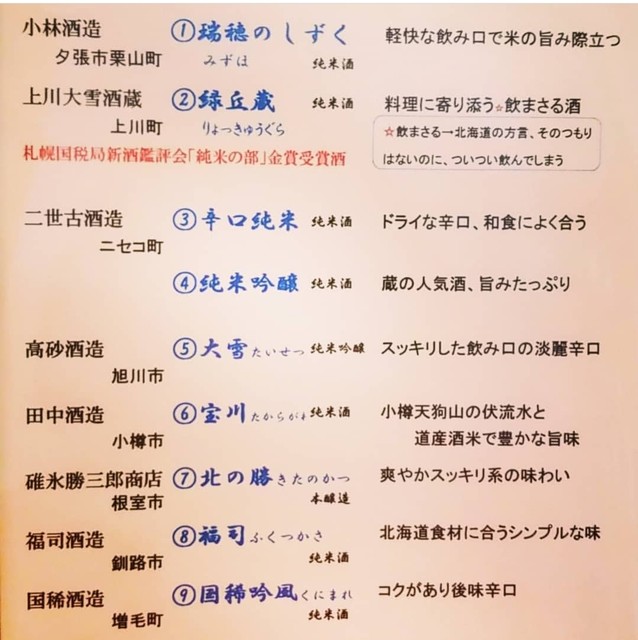 小林酒造 ①瑞穂のしずく 軽快な飲み口で米の旨み際立つ
夕張市栗山町 みずほ 純米酒
上川大雪酒蔵 ②緑丘蔵 純米酒 料理に寄り添う☆飲まさる酒
上川町 りょっきゅうぐら ☆飲まさる→北海道の方言、そのつもり
札幌国税局新酒鑑評会「純米の部」金賞受賞酒 はないのに、ついつい飲んでしまう
二世古酒造 ③辛口純米 純米酒 ドライな辛口、和食によく合う
ニセコ町
④純米吟醸 純米酒 蔵の人気酒、旨みたっぷり
高砂酒造 ⑤大雪 たいせつ 純米吟醸 スッキリした飲み口の淡麗辛口
旭川市
田中酒造 ⑥宝川 たからがわ 純米酒 小樽天狗山の伏流水と
小樽市 道産酒米で豊かな旨味
碓氷勝三郎商店 ⑦北の勝 きたのかつ 爽やかスッキリ系の味わい
根室市 本醸造
福司酒造 ⑧福司 ふくつかさ 北海道食材に合うシンプルな味
釧路市 純米酒
国稀酒造 ⑨国稀吟風 くにまれ コクがあり後味辛口
増毛町 純米酒